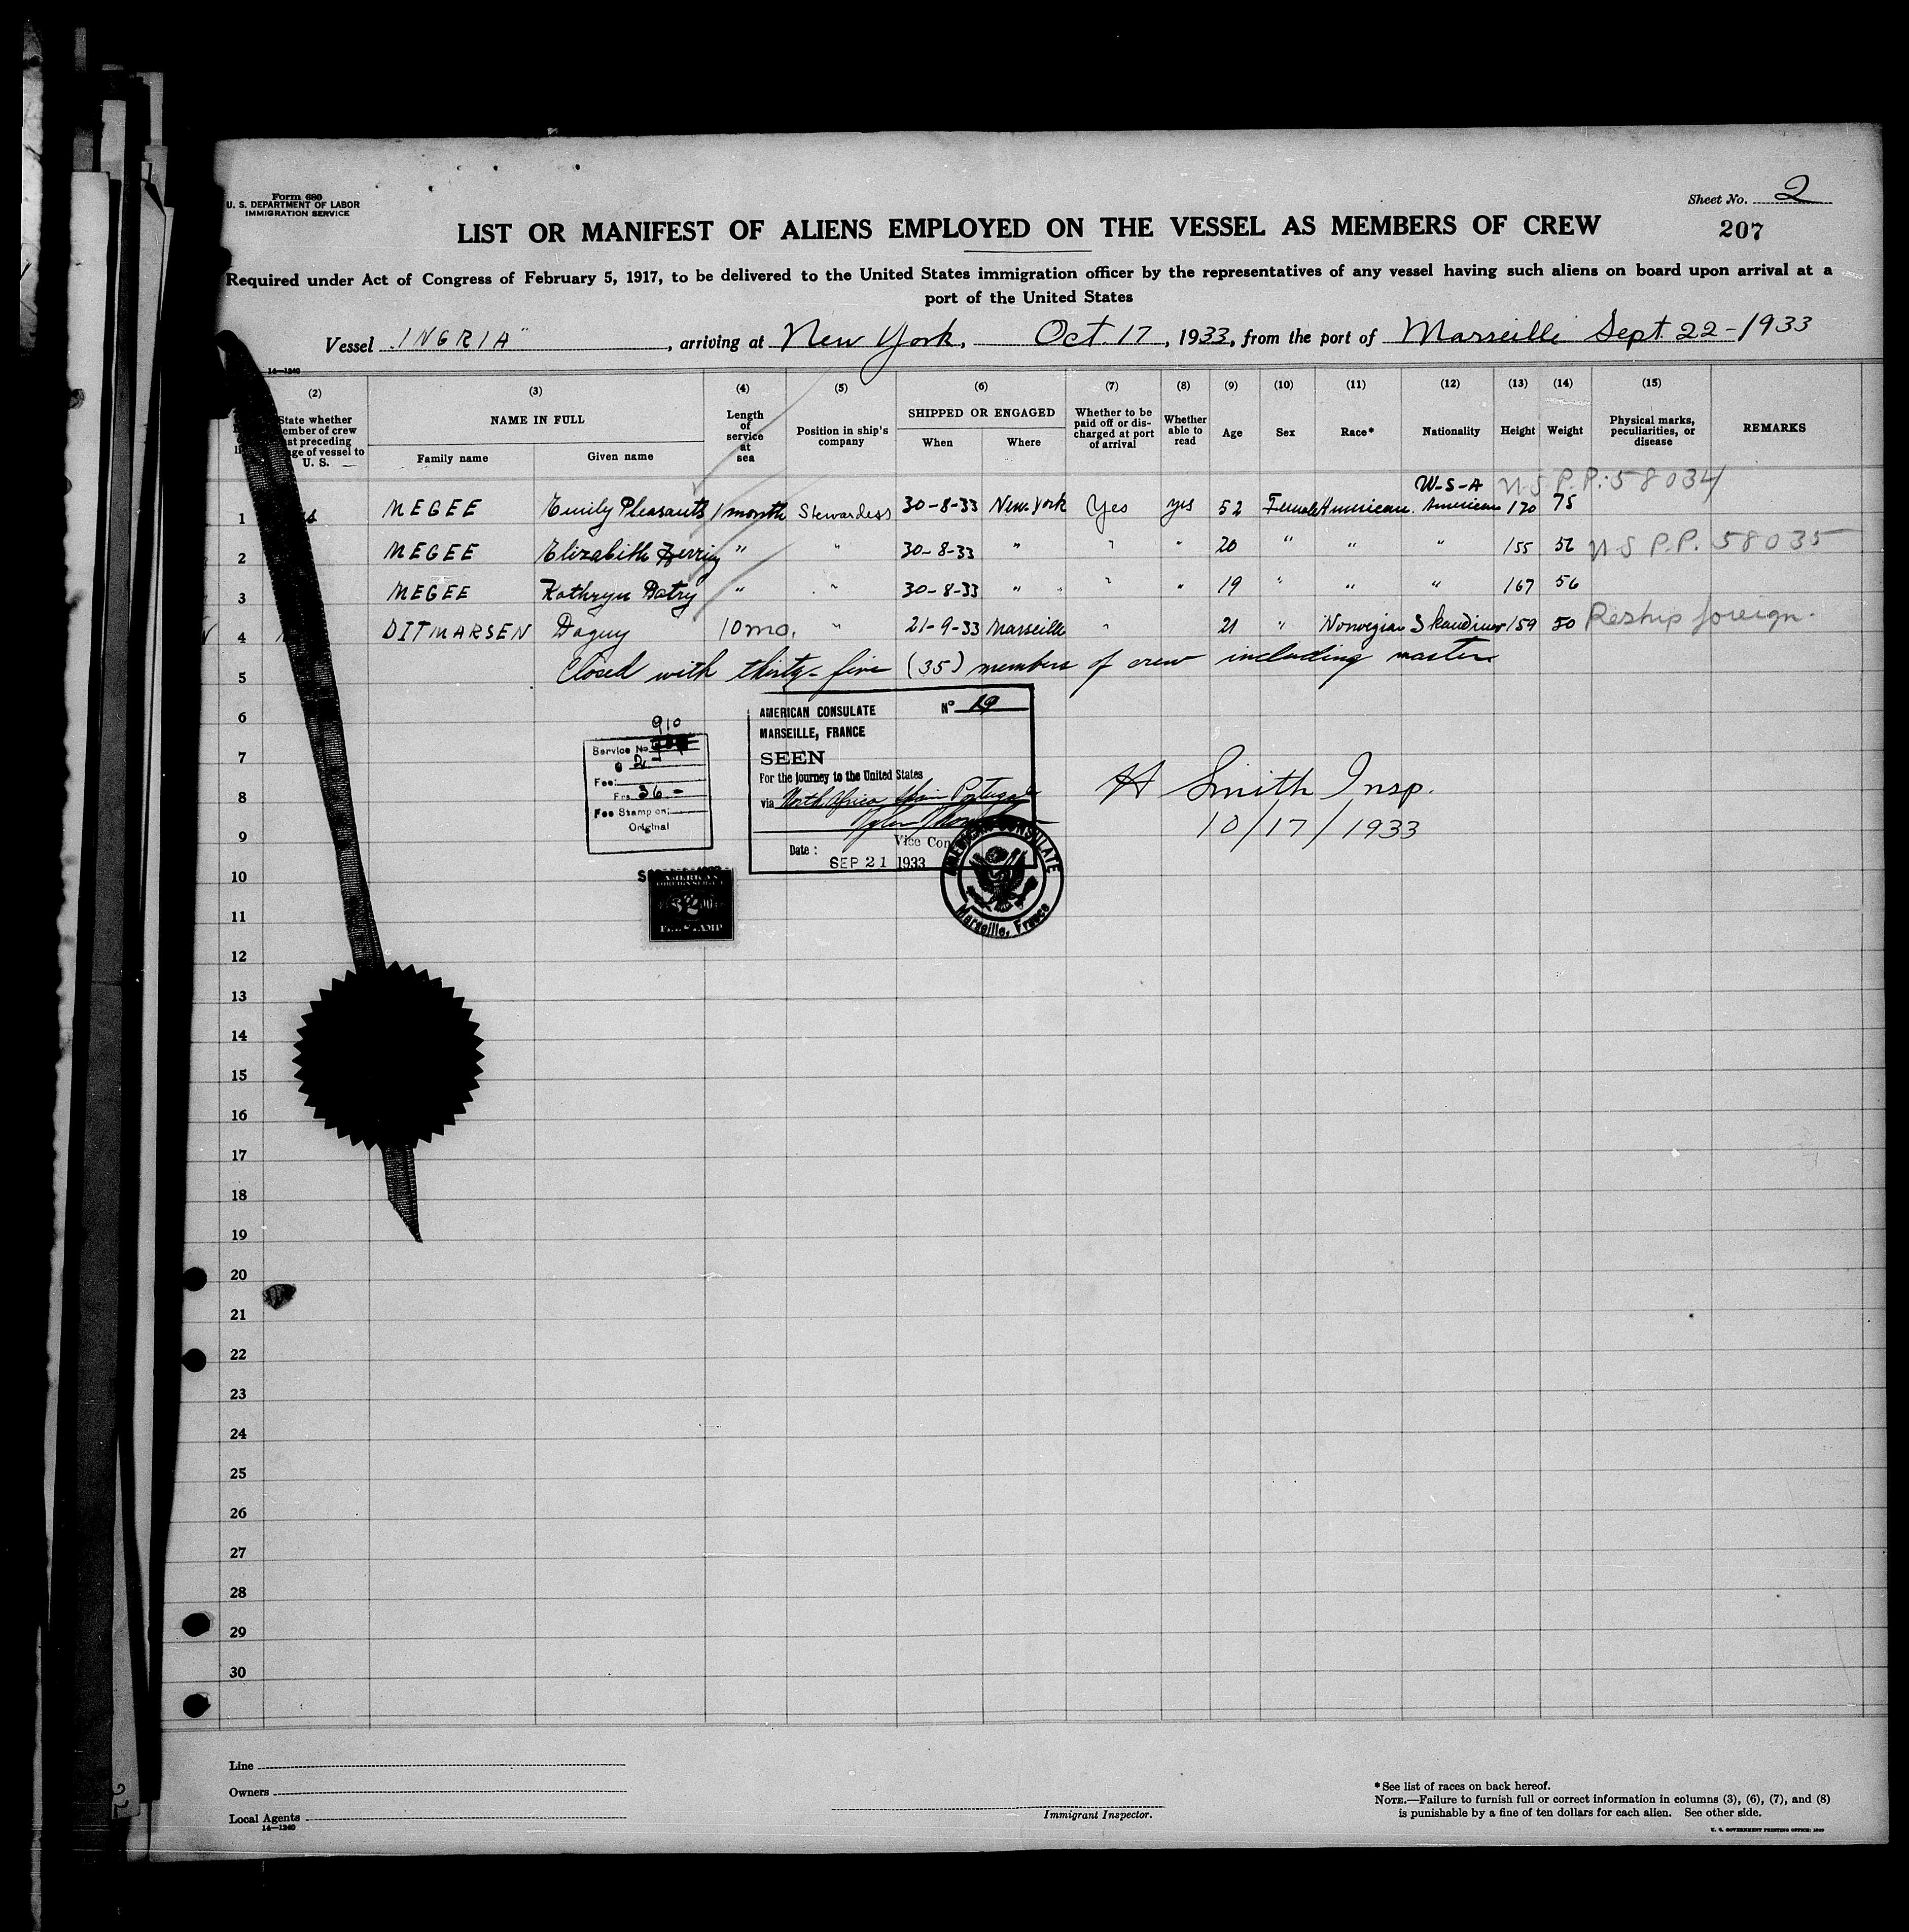 Form 680
U. S. DEPARTMENT OF LABOR
IMMIGRATION SERVICE
Sheet No. 2
207
LIST OR MANIFEST OF ALIENS EMPLOYED ON THE VESSEL AS MEMBERS OF CREW
Required under Act of Congress of February 5, 1917, to be delivered to the United States immigration officer by the representatives of any vessel having such aliens on board upon arrival at a
port of the United States
Vessel "INGRIA", arriving at New York, Oct. 17, 1933, from the port of Marseille Sept. 22-1933
14—1240
(2) (3) (4) (5) (6) (7) (8) (9) (10) (11) (12) (13) (14) (15)
State whether member of crew last preceding voyage of vessel to U. S.
NAME IN FULL
Family name Given name
Length of service at sea
Position in ship's company
SHIPPED OR ENGAGED
When Where
Whether to be paid off or discharged at port of arrival
Whether able to read
Age Sex Race* Nationality Height Weight
Physical marks, peculiarities, or disease
REMARKS
U-S-A U S P.P. 58034
1 MEGEE Emily Pleasants 1 month Stewardess 30-8-33 New York Yes yes 52 Female American American 170 75
2 MEGEE Elizabeth " " 30-8-33 " " " 20 " " " 155 52 U S P.P. 58035
3 MEGEE Kathryn " " 30-8-33 " " " 19 " " " 167 56
4 DITMARSEN Dagny 10 mo. " 21-9-33 Marseille " 21 " Norwegian 159 50 Reship foreign.
5 Closed with thirty-five (35) members of crew including master
6
7
8
9
10
11
12
13
14
15
16
17
18
19
20
21
22
23
24
25
26
27
28
29
30
910
Service No.
$ 2
Fee:
Frs 36 -
Fee Stamp on:
Original
AMERICAN CONSULATE No 19
MARSEILLE, FRANCE
SEEN
For the journey to the United States
via North Africa, Spain Portugal
Vice Con
Date : SEP 21 1933
AMERICAN CONSULATE
Marseille, France
AMERICAN
FOREIGN SERVICE
$2.00
FEE STAMP
H Smith Insp.
10/17/1933
Line
Owners
Local Agents
14—1240
Immigrant Inspector.
*See list of races on back hereof.
NOTE.—Failure to furnish full or correct information in columns (3), (6), (7), and (8)
is punishable by a fine of ten dollars for each alien. See other side.
U. S. GOVERNMENT PRINTING OFFICE: